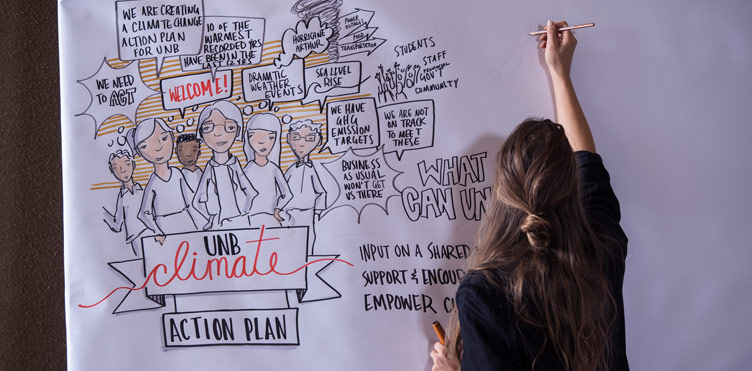 WE ARE CREATING
A CLIMATE CHANGE
ACTION PLAN
FOR UNB
10 OF THE
WARMEST
RECORDED YRS
HAVE BEEN IN THE
LAST 12 YRS
HURRICANE
ARTHUR
POWER
OUTAGES
POOR
TRANSPORTATION
STUDENTS
STAFF
PROVINCIAL
GOV'T
COMMUNITY
WE NEED
TO ACT
WELCOME!
DRAMATIC
WEATHER
EVENTS
SEA LEVEL
RISE
WE HAVE
GHG
EMISSION
TARGETS
WE ARE NOT
ON TRACK
TO MEET
THESE
BUSINESS
AS USUAL
WON'T GET
US THERE
WHAT
CAN UN
UNB
climate
ACTION PLAN
INPUT ON A SHARED
SUPPORT & ENCOU
EMPOWER